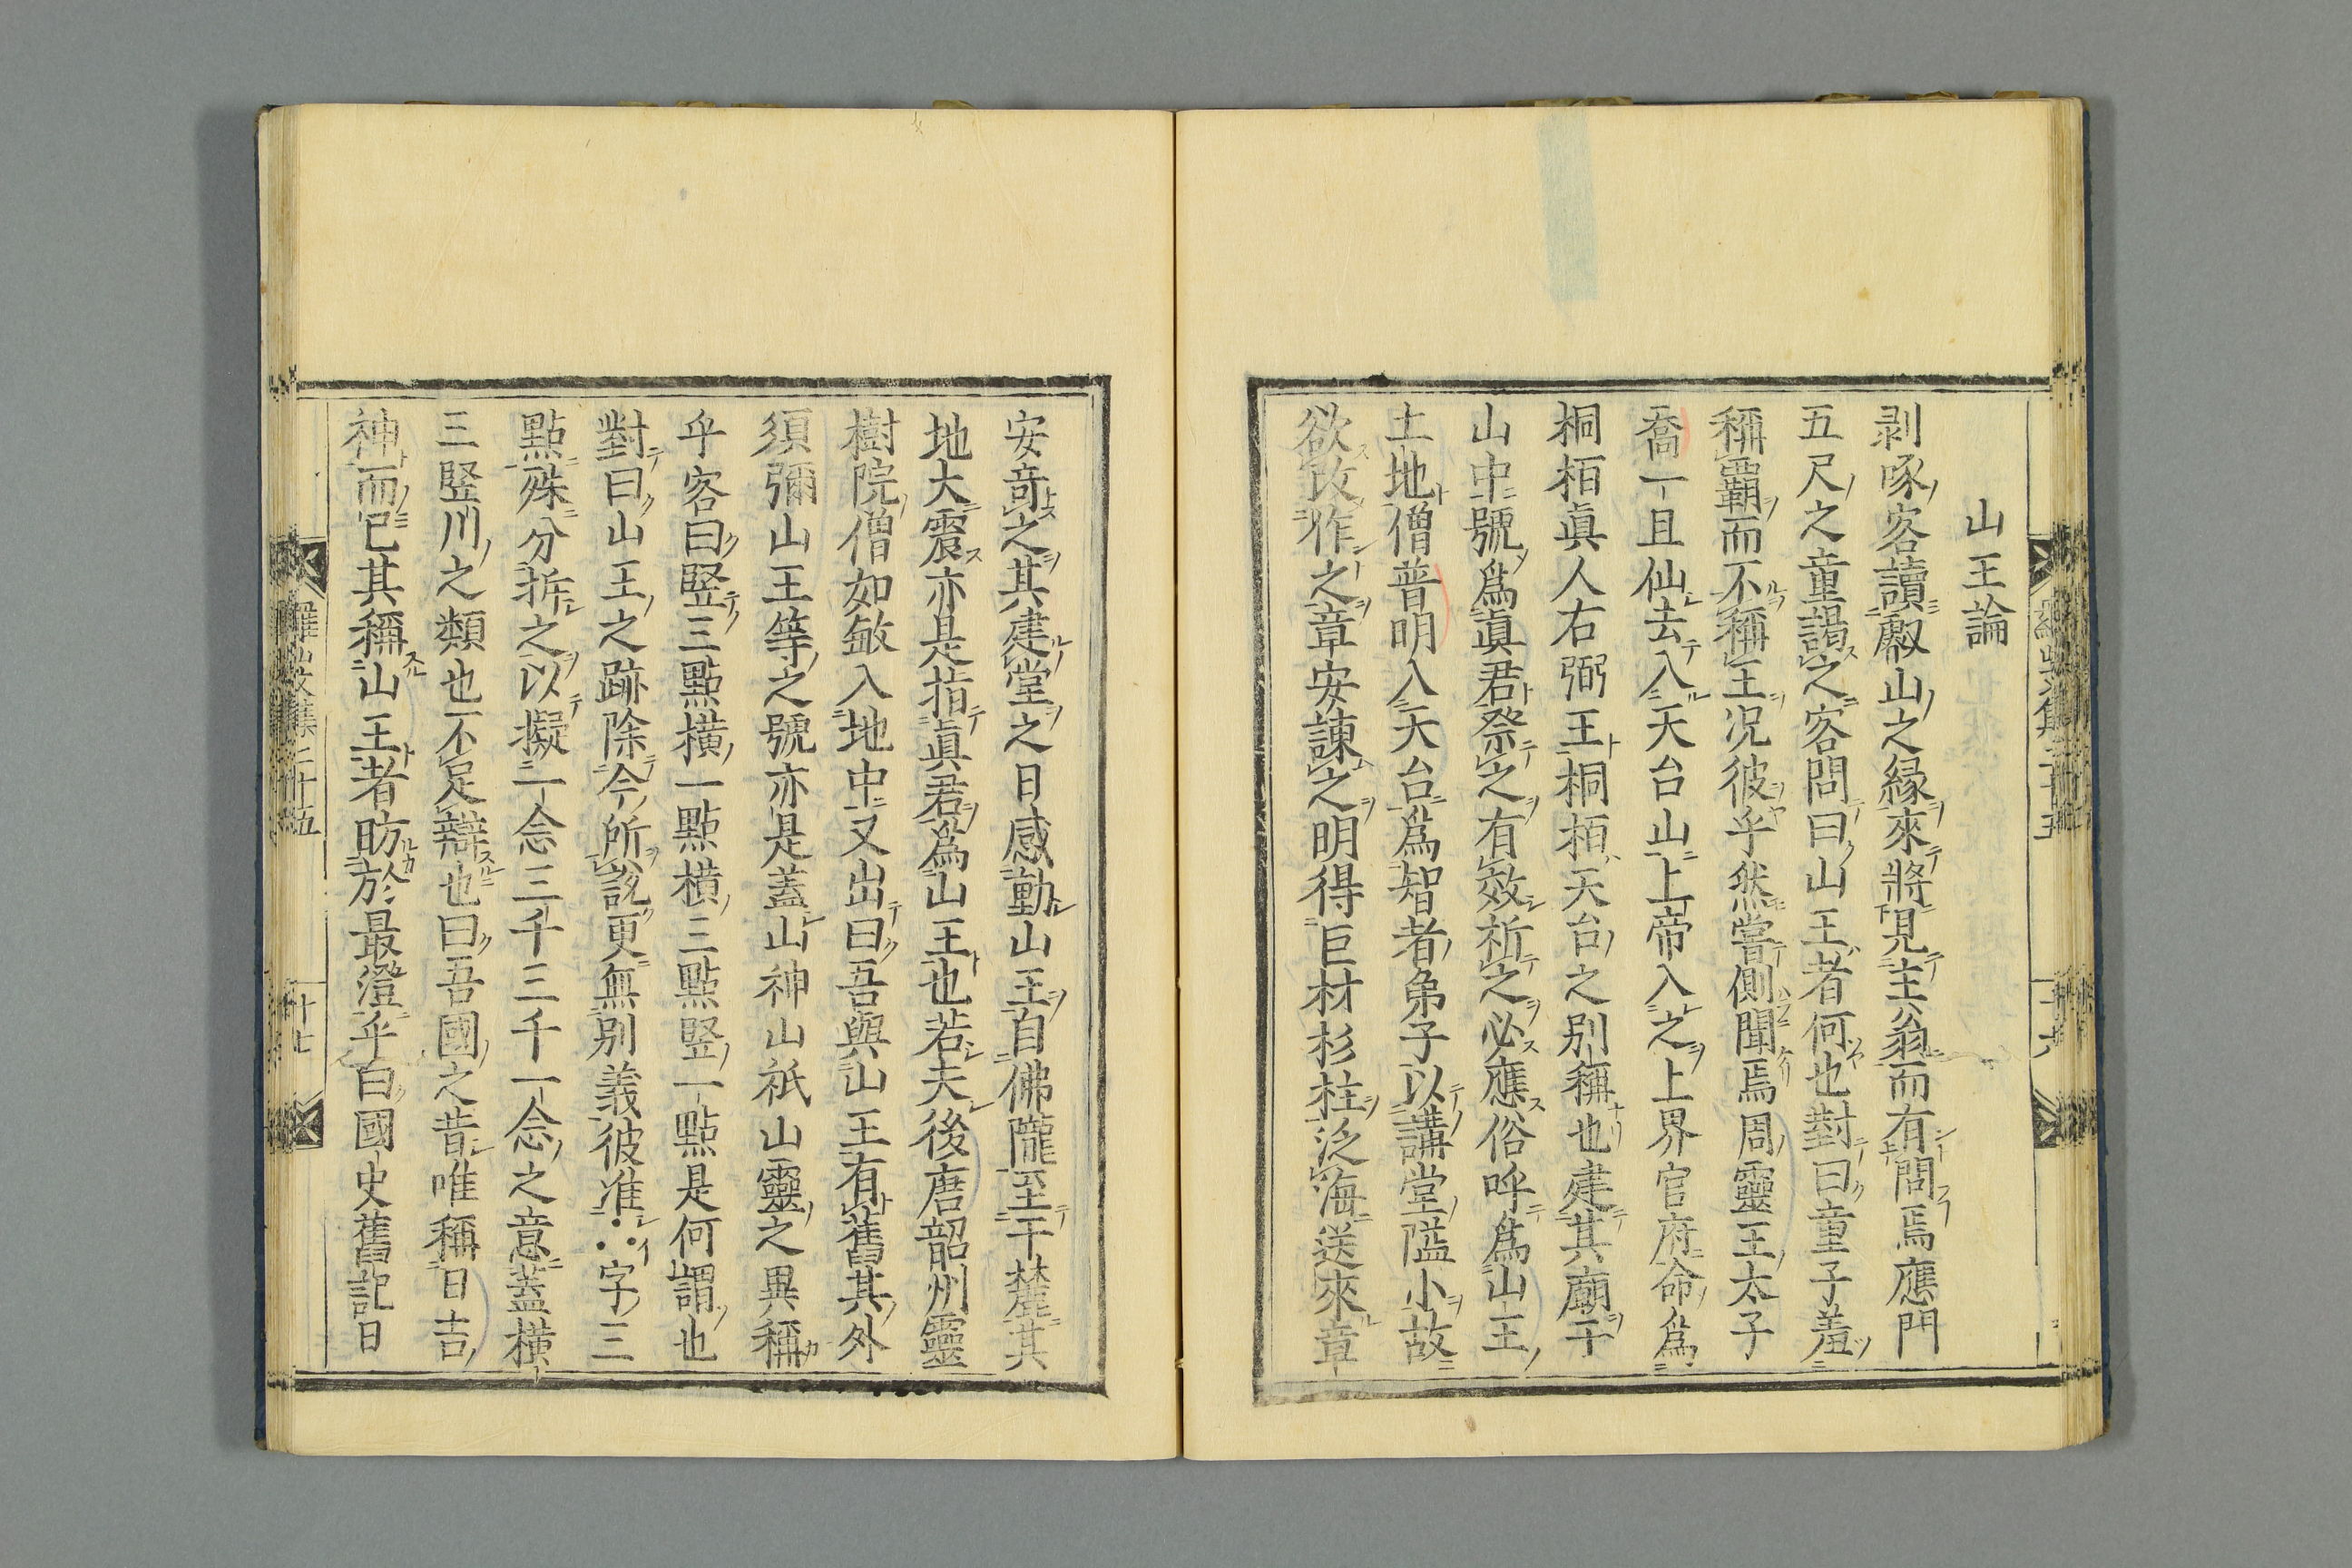 山王論
剥啄客讀叡山之緣來將見主翁而有問焉應門
五尺之童謁之客問曰山王者何也對曰童子羞
稱覇而不稱王况彼乎然嘗側聞焉周靈王太子
喬一旦仙去入天台山上帝入之上界官府命爲
桐栢眞人右弼王桐栢天台之別稱也建其廟于
山中號爲眞君祭之有效祈之必應俗呼爲山王
土地僧普明入天台爲智者弟子以講堂隘小故
欲改作之章安諫之明得巨材杉柱泛海送來章
安奇之其建堂之日感動山王自佛隴至于麓其
地大震亦是指眞君爲山王也若夫後唐韶州靈
樹院僧如敏入地中又出曰吾與山王有舊其外
須彌山王等之號亦是蓋山神山祇山靈之異稱
乎客曰竪三點横一點横三點竪一點是何謂也
對曰山王之跡除今所說更無別義彼准∴字三
點殊分拆之以擬一念三千三千一念之意蓋横
三竪川之類也不足辯也曰吾國之昔唯稱日吉
神而已其稱山王者昉於最澄乎曰國史舊記日
羅山文集二十五
十七